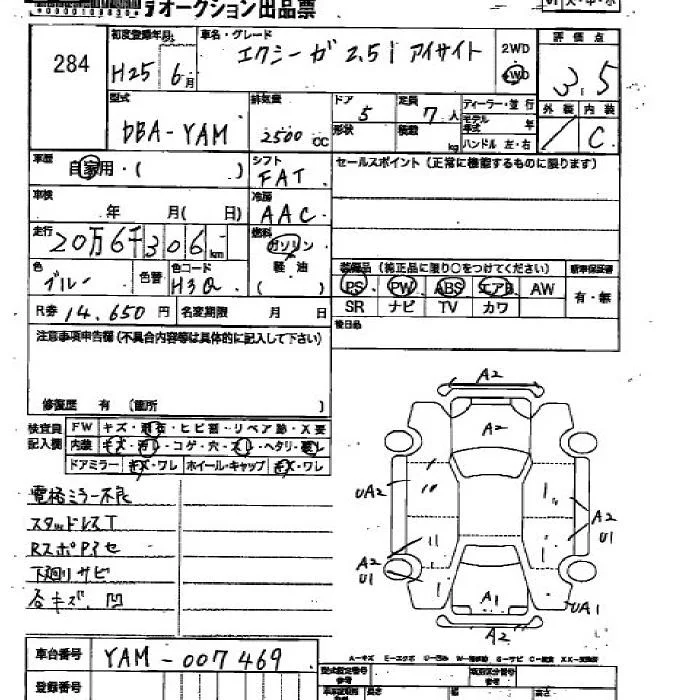 オークション出品票
284
初度登録年月
H25 6月
車名・グレード
エクシーガ 2.5i アイサイト
2WD
4WD
評価点
3.5
型式
DBA-YAM
排気量
2500 CC
ドア
5
定員
7人
形状
積載
kg
ディーラー・並行
モデル年式 年
ハンドル 左・右
外装 内装
C
車歴
自家用・( )
シフト
FAT
セールスポイント (正常に機能するものに限ります)
車検
年 月( 日)
冷房
AAC
走行
20万6千306km
燃料
ガソリン
軽油
( )
色
ブルー
色替
色コード
H3Q
装備品 (純正品に限り○をつけてください)
新車保証書
PS PW ABS エアB AW
SR ナビ TV カワ
有・無
R券 14.650 円
名変期限 月 日
後日品
注意事項申告欄 (不具合内容等は具体的に記入して下さい)
修復歴 有 [箇所 ]
検査員記入欄
FW キズ・飛石・ヒビ割・リペア跡・X要
内装 キズ・汚れ・コゲ・穴・スレ・ヘタリ・臭い
ドアミラー キズ・ワレ ホイール・キャップ キズ・ワレ
電格ミラー不良
スタッドレスT
RスポPイセ
下廻リサビ
各キズ、凹
A2
A2
UA2
A2
U1
A2
U1
A1
UA1
A2
車台番号
YAM-007469
登録番号
A-キズ E-エクボ U-凹み W-補修跡 S-サビ C-腐食 XX-交換済
型式指定番号
類別区分番号
長さ
幅
高さ